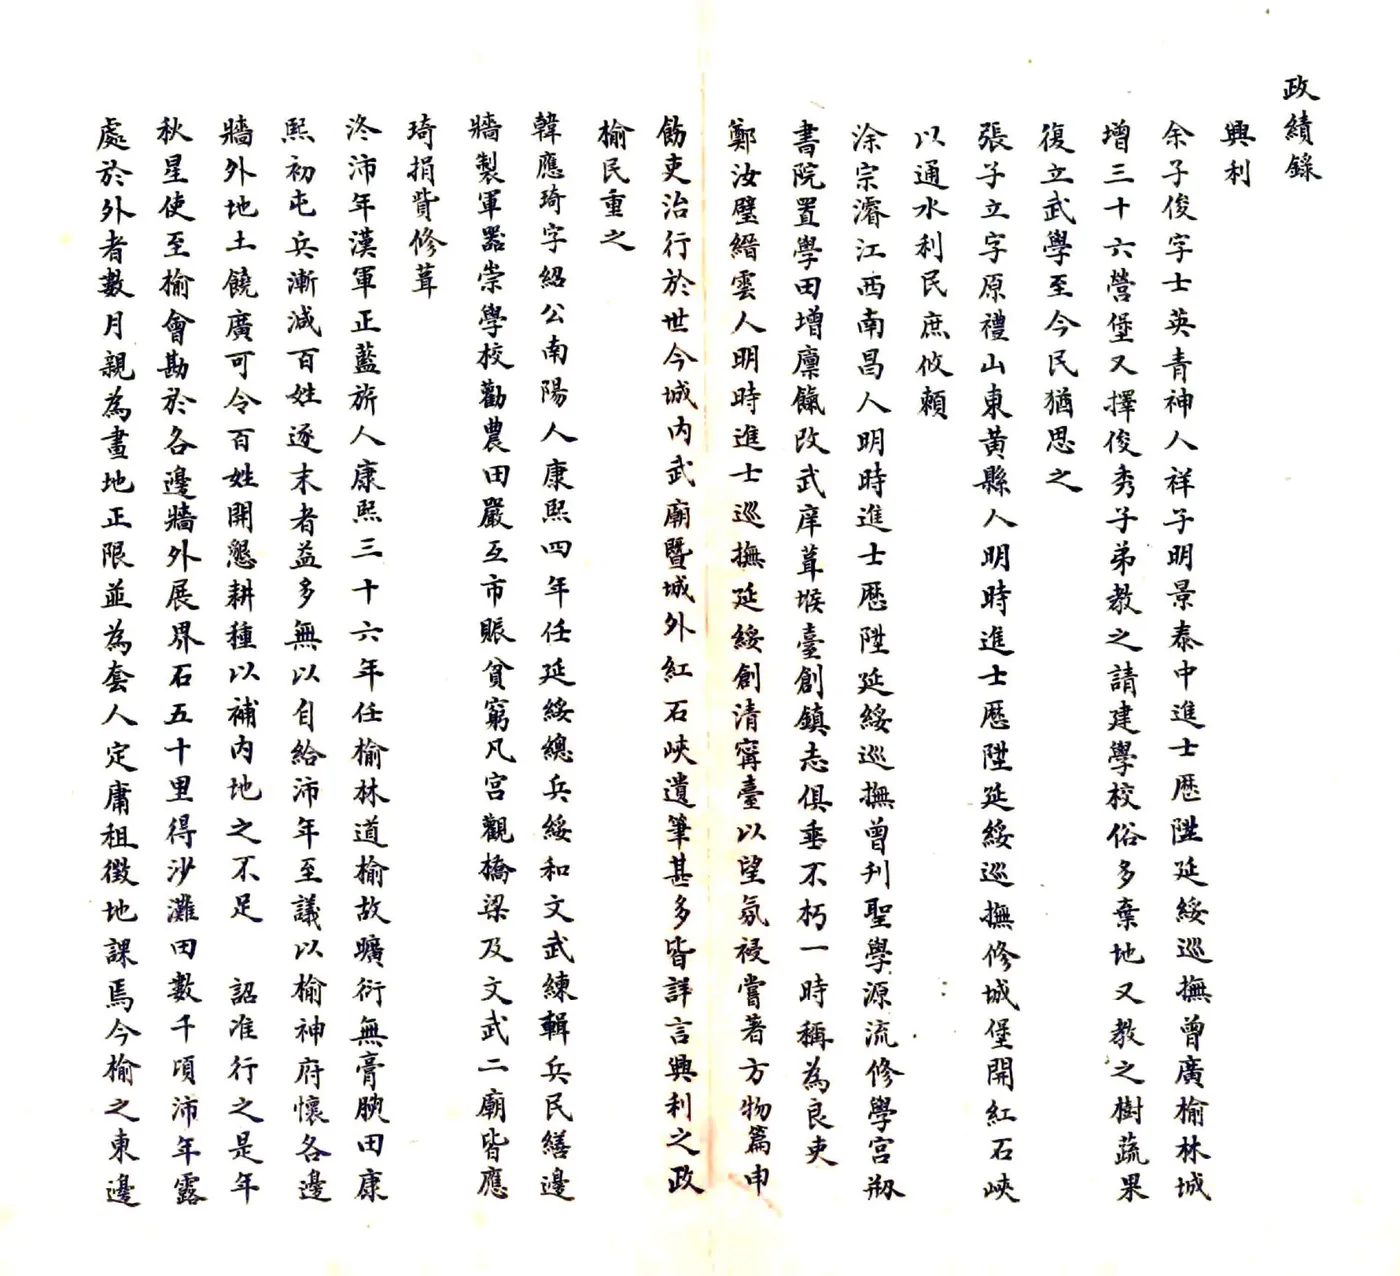 政績錄
興利
余子俊字士英青神人祥子明景泰中進士歷陞延綏巡撫曾廣榆林城
增三十六營堡又擇俊秀子弟教之請建學校俗多棄地又教之樹蔬果
復立武學至今民猶思之
張子立字原禮山東黃縣人明時進士歷陞延綏巡撫修城堡開紅石峽
以通水利民庶攸賴
涂宗濬江西南昌人明時進士歷陞延綏巡撫曾刋聖學源流修學宮剏
書院置學田增廩餼改武庠葺堠臺創鎮志俱垂不朽一時稱為良吏
鄭汝璧縉雲人明時進士巡撫延綏創清寧臺以望氛祲嘗著方物篇申
飭吏治行於世今城內武廟暨城外紅石峽遺筆甚多皆詳言興利之政
榆民重之
韓應琦字紹公南陽人康熙四年任延綏總兵綏和文武練輯兵民繕邊
牆製軍器崇學校勸農田嚴互市賑貧窮凡宮觀橋梁及文武二廟皆應
琦捐貲修葺
佟沛年漢軍正藍旂人康熙三十六年任榆林道榆故曠衍無膏腴田康
熙初屯兵漸減百姓逐末者益多無以自給沛年至議以榆神府懷各邊
牆外地土饒廣可令百姓開懇耕種以補內地之不足　詔准行之是年
秋星使至榆會勘於各邊牆外展界石五十里得沙灘田數千頃沛年露
處於外者數月親為畫地正限並為套人定庸租徵地課焉今榆之東邊